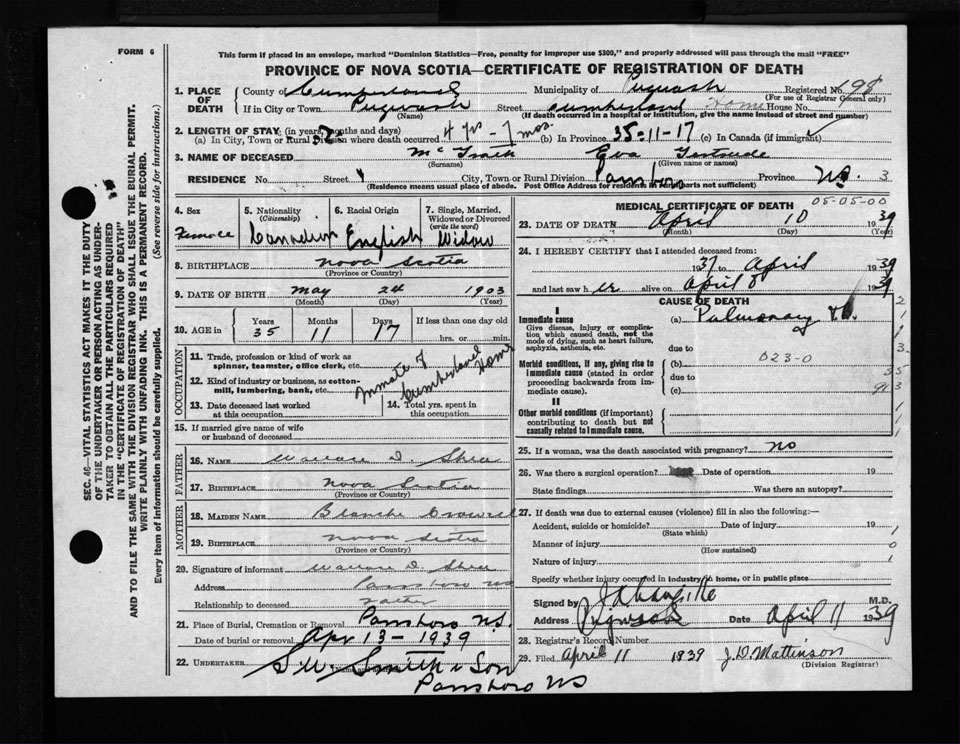 FORM 6
This form if placed in an envelope, marked "Dominion Statistics—Free, penalty for improper use $300," and properly addressed will pass through the mail "FREE"
PROVINCE OF NOVA SCOTIA—CERTIFICATE OF REGISTRATION OF DEATH
SEC. 46—VITAL STATISTICS ACT MAKES IT THE DUTY
OF THE UNDERTAKER OR PERSON ACTING AS UNDER-
TAKER TO OBTAIN ALL THE PARTICULARS REQUIRED
IN THE "CERTIFICATE OF REGISTRATION OF DEATH"
AND TO FILE THE SAME WITH THE DIVISION REGISTRAR WHO SHALL ISSUE THE BURIAL PERMIT.
WRITE PLAINLY WITH UNFADING INK. THIS IS A PERMANENT RECORD.
Every item of information should be carefully supplied. (See reverse side for instructions.)
1. PLACE OF DEATH County of Cumberland Municipality of Pugwash Registered No. 198
(For use of Registrar General only)
If in City or Town Pugwash Street Cumberland Home House No.
(Name) (If death occurred in a hospital or institution, give the name instead of street and number)
2. LENGTH OF STAY (in years, months and days)
(a) In City, Town or Rural Division where death occurred 4 yrs - 7 mos. (b) In Province 35-11-17 (c) In Canada (if immigrant)
3. NAME OF DECEASED Eva Gertrude
(Surname) (Given name or names)
RESIDENCE No. Street City, Town or Rural Division Parrsboro Province N.S. 3
(Residence means usual place of abode. Post Office Address for residents in rural parts not sufficient)
4. Sex
Female
5. Nationality
(Citizenship)
Canadian
6. Racial Origin
English
7. Single, Married, Widowed or Divorced
(write the word)
Widow
8. BIRTHPLACE Nova Scotia
(Province or Country)
9. DATE OF BIRTH May 24 1903
(Month) (Day) (Year)
10. AGE in Years Months Days If less than one day old
35 11 17 hrs. or min.
OCCUPATION
11. Trade, profession or kind of work as
spinner, teamster, office clerk, etc.
12. Kind of industry or business, as cotton-
mill, lumbering, bank, etc.
Inmate of Cumberland Home
13. Date deceased last worked
at this occupation
14. Total yrs. spent in
this occupation
15. If married give name of wife
or husband of deceased
FATHER
16. NAME Wallace D. Shea
17. BIRTHPLACE Nova Scotia
(Province or Country)
MOTHER
18. MAIDEN NAME Blanche
19. BIRTHPLACE Nova Scotia
(Province or Country)
20. Signature of informant Wallace D. Shea
Address Parrsboro NS
Relationship to deceased Father
21. Place of Burial, Cremation or Removal Parrsboro N.S.
Date of burial or removal Apr 13 - 1939
22. UNDERTAKER S.W. Smith & Son
Parrsboro NS
MEDICAL CERTIFICATE OF DEATH 05-05-00
23. DATE OF DEATH April 10 1939
(Month) (Day) (Year)
24. I HEREBY CERTIFY that I attended deceased from:
1937 to April 1939
and last saw her alive on April 8 1939
CAUSE OF DEATH
I
Immediate cause
Give disease, injury or complica-
tion which caused death, not the
mode of dying, such as heart failure,
asphyxia, asthenia, etc.
(a) Pulmonary T.B.
due to
023-0
Morbid conditions, if any, giving rise to
immediate cause (stated in order
proceeding backwards from im-
mediate cause).
(b)
due to
(c)
II
Other morbid conditions (if important)
contributing to death but not
causally related to immediate cause.
25. If a woman, was the death associated with pregnancy? no
26. Was there a surgical operation? Date of operation 19
State findings Was there an autopsy?
27. If death was due to external causes (violence) fill in also the following:—
Accident, suicide or homicide? Date of injury 19
(State which)
Manner of injury
(How sustained)
Nature of injury
Specify whether injury occurred in industry, in home, or in public place
Signed by M.D.
Address Pugwash Date April 11 1939
28. Registrar's Record Number
29. Filed April 11 1939 J. D. Mattinson
(Division Registrar)